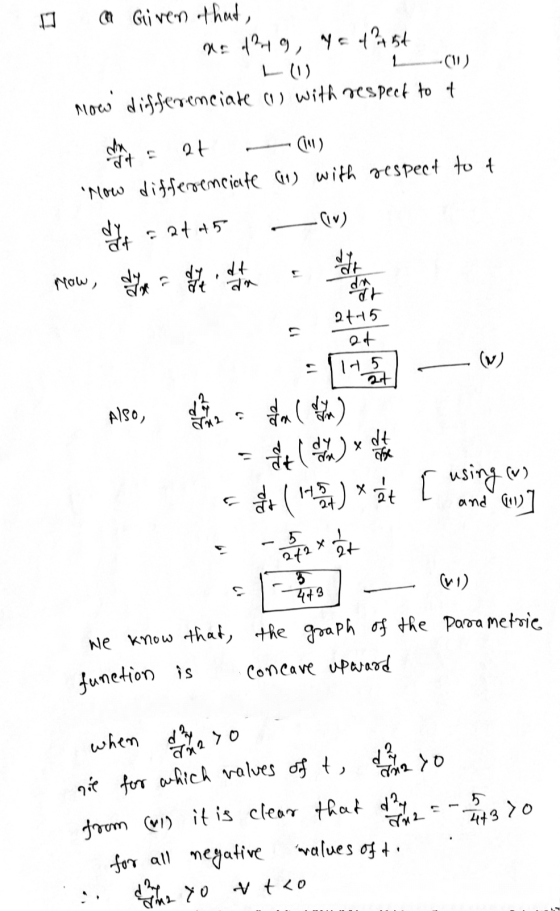 □ (a) Given that,
x = t²+9, y = t²+5t
(I) (II)
Now differenciate (I) with respect to t
dx/dt = 2t — (III)
Now differenciate (II) with respect to t
dy/dt = 2t+5 — (IV)
Now, dy/dx = dy/dt · dt/dx = (dy/dt)/(dx/dt)
= (2t+5)/2t
= 1+5/2t — (V)
Also, d²y/dx² = d/dx (dy/dx)
= d/dt (dy/dx) × dt/dx
= d/dt (1+5/2t) × 1/2t [using (V) and (III)]
= - 5/2t² × 1/2t
= - 5/4t³ — (VI)
We know that, the graph of the parametric
function is concave upward
when d²y/dx² > 0
ie for which values of t, d²y/dx² > 0
from (VI) it is clear that d²y/dx² = - 5/4t³ > 0
for all negative values of t.
∴ d²y/dx² > 0 ∀ t < 0